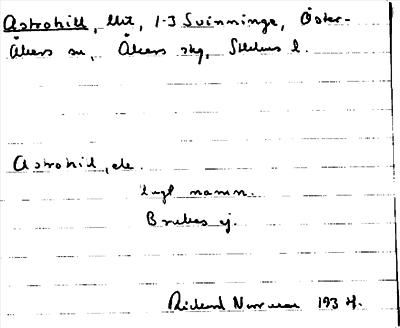 Astrohill, lht, 1-3 Svinninge, Öster-
Åkers sn, Åkers skg, Sthlms l.
Astrohil, ele.
Engl namn.
Brukas ej.
Rickard Norrman 193